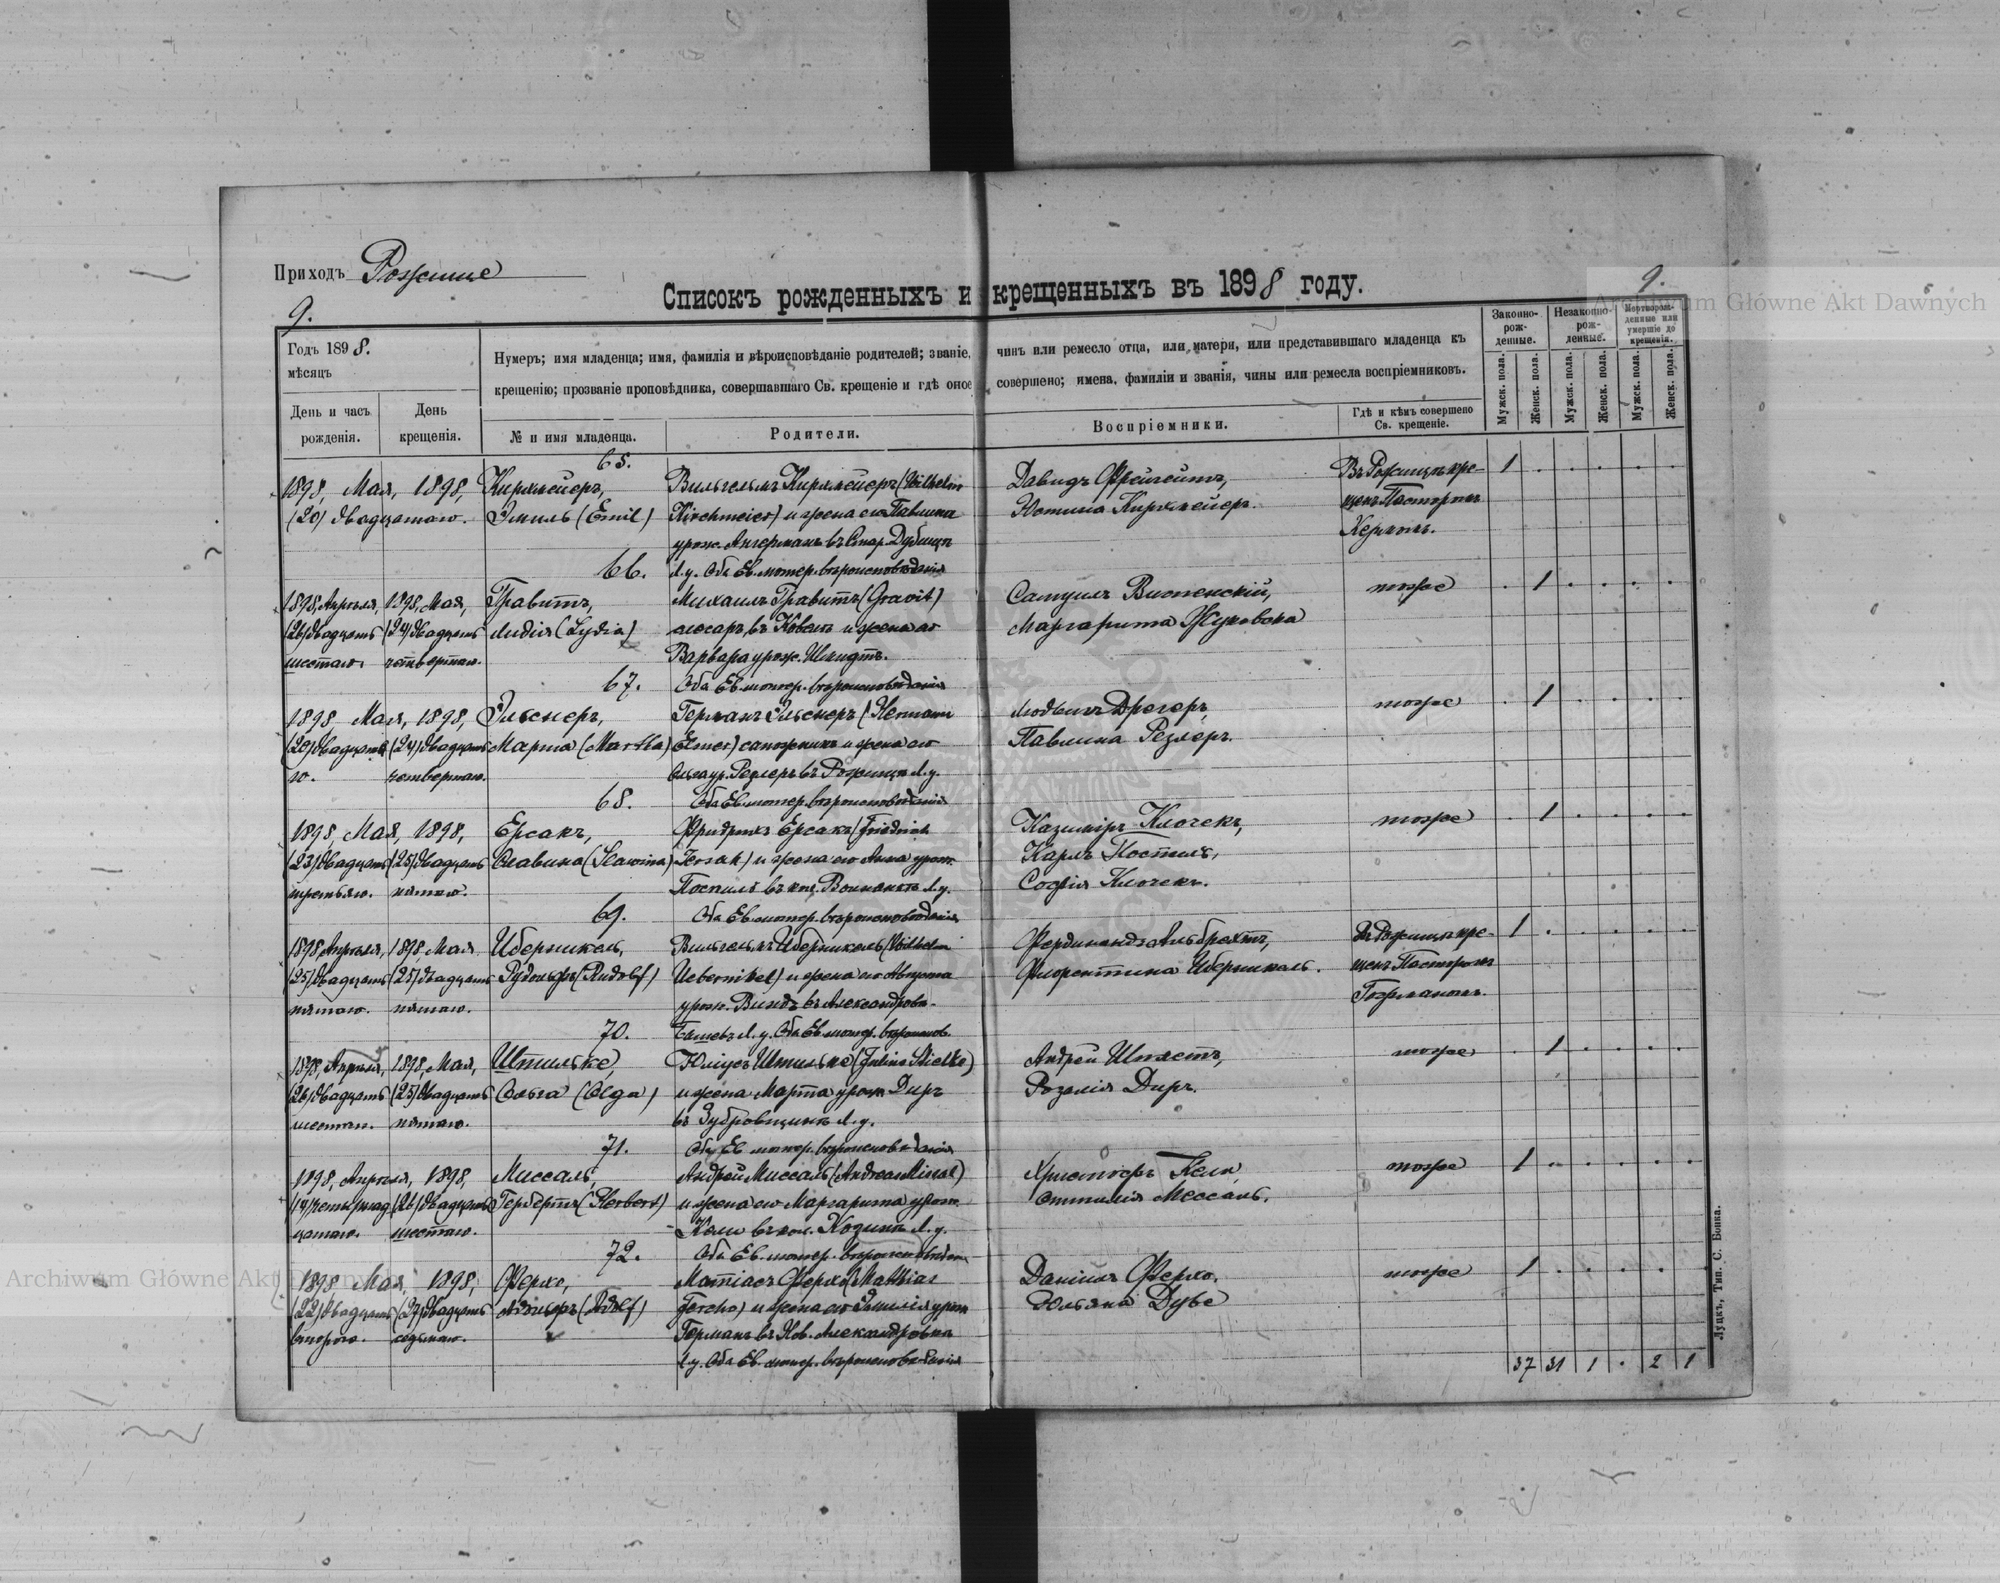 Приходъ Рожище
Списокъ рожденныхъ и крещенныхъ въ 1898 году.
9.
9.
Archiwum Główne Akt Dawnych
Годъ 1898.
мѣсяцъ
Нумеръ; имя младенца; имя, фамилія и вѣроисповѣданіе родителей; званіе, чинъ или ремесло отца, или матери, или представившаго младенца къ
крещенію; прозваніе проповѣдника, совершавшаго Св. крещеніе и гдѣ оное совершено; имена, фамиліи и званія, чины или ремесла воспріемниковъ.
Законно-рож-денные.
Незаконно-рож-денные.
Мертворож-денные или умершіе до крещенія.
День и часъ рожденія.
День крещенія.
№ и имя младенца.
Родители.
Воспріемники.
Гдѣ и кѣмъ совершено Св. крещеніе.
Мужск. пола.
Женск. пола.
Мужск. пола.
Женск. пола.
Мужск. пола.
Женск. пола.
65.
1898, Мая, 1898, Кирхмейеръ, Вильгельмъ Кирхмейеръ (Wilhelm Давидъ Въ Рожищѣ кре- 1
(20) двадцатаго. Эмиль (Emil) Kirchmeier) и жена его Павлина Юстина Кирхмейеръ. щенъ Пасторомъ
урож. Ангерманъ въ Стар. Дубищѣ Керномъ.
66. Л.у. Оба Ев. лютер. вѣроисповѣданія
1898, Апрѣля, 1898, Мая, Гравитъ, Михаилъ Гравитъ (Gravit) Самуилъ тоже 1
(26) двадцать (24) двадцать Лидія (Lydia) слесарь въ и жена его Маргарита Жукова
шестаго. четвертаго. Варвара урож. Шмидтъ.
67. Оба Ев. лютер. вѣроисповѣданія
1898 Мая, 1898, Эльснеръ, Германъ Эльснеръ (Hermann Людвигъ Дрегеръ, тоже 1
(20) двадцата- (24) двадцать Марта (Martha) Elsner) сапожникъ и жена его Павлина Резлеръ.
го. четвертаго. Ольга ур. Реслеръ въ Рожищѣ Л.у.
68. Оба Ев. лютер. вѣроисповѣданія
1898, Мая, 1898, Ерсакъ, Фридрихъ Ерсакъ (Friedrich Казимиръ Клочекъ, тоже 1
(23) двадцать (25) двадцать Славина (Slawina) Jersak) и жена его Анна урож. Карлъ Поспилъ,
третьяго. пятаго. Поспилъ въ кол. Л.у. Софія Клочекъ.
69. Оба Ев. лютер. вѣроисповѣданія
1898, Апрѣля, 1898, Мая Иберникель, Вильгельмъ Иберникель (Wilhelm Фердинандъ Альбрехтъ, Въ Рожищѣ кре- 1
(25) двадцать (25) двадцать Рудольфъ (Rudolf) Uebernikel) и жена его Августа Флорентина Иберникель. щенъ Пасторомъ
пятаго. пятаго. урож. Виндъ въ Александров- Гофманомъ.
70. Л.у. Оба Ев. лютер. вѣроисповѣ.
1898, Апрѣля, 1898, Мая, Штильке, Юліусъ Штильке (Julius Stielke) Андрей Шпястъ, тоже 1
(26) двадцать (25) двадцать Ольга (Olga) и жена Марта урож. Диръ Розалія Диръ.
шестаго. пятаго. въ Л.у.
71. Оба Ев. лютер. вѣроисповѣданія
1898, Апрѣля, 1898, Миссаль, Андрей Миссаль (Andreas Missal) Христофъ Кели, тоже 1
(14) четырнад- (26) двадцать Гербертъ (Herbert) и жена его Маргарита урож. Оттилія Миссаль.
цатаго. шестаго. Кели въ кол. Козинъ Л.у.
72. Оба Ев. лютер. вѣроисповѣдан.
1898 Мая, 1898, Ферхо, Матіасъ Ферхо (Mathias Даніилъ Ферхо, тоже 1
(22) двадцать (27) двадцать Адольфъ (Adolf) Fercho) и жена его Эмилія урож. Юльяна Дубе
втораго. седьмаго. Германъ въ Нов. Александровкѣ
Л.у. Оба Ев. лютер. вѣроисповѣданія
37 31 1 . 2 1
Луцкъ, Тип. С. Бонка.
Archiwum Główne Akt Dawnych